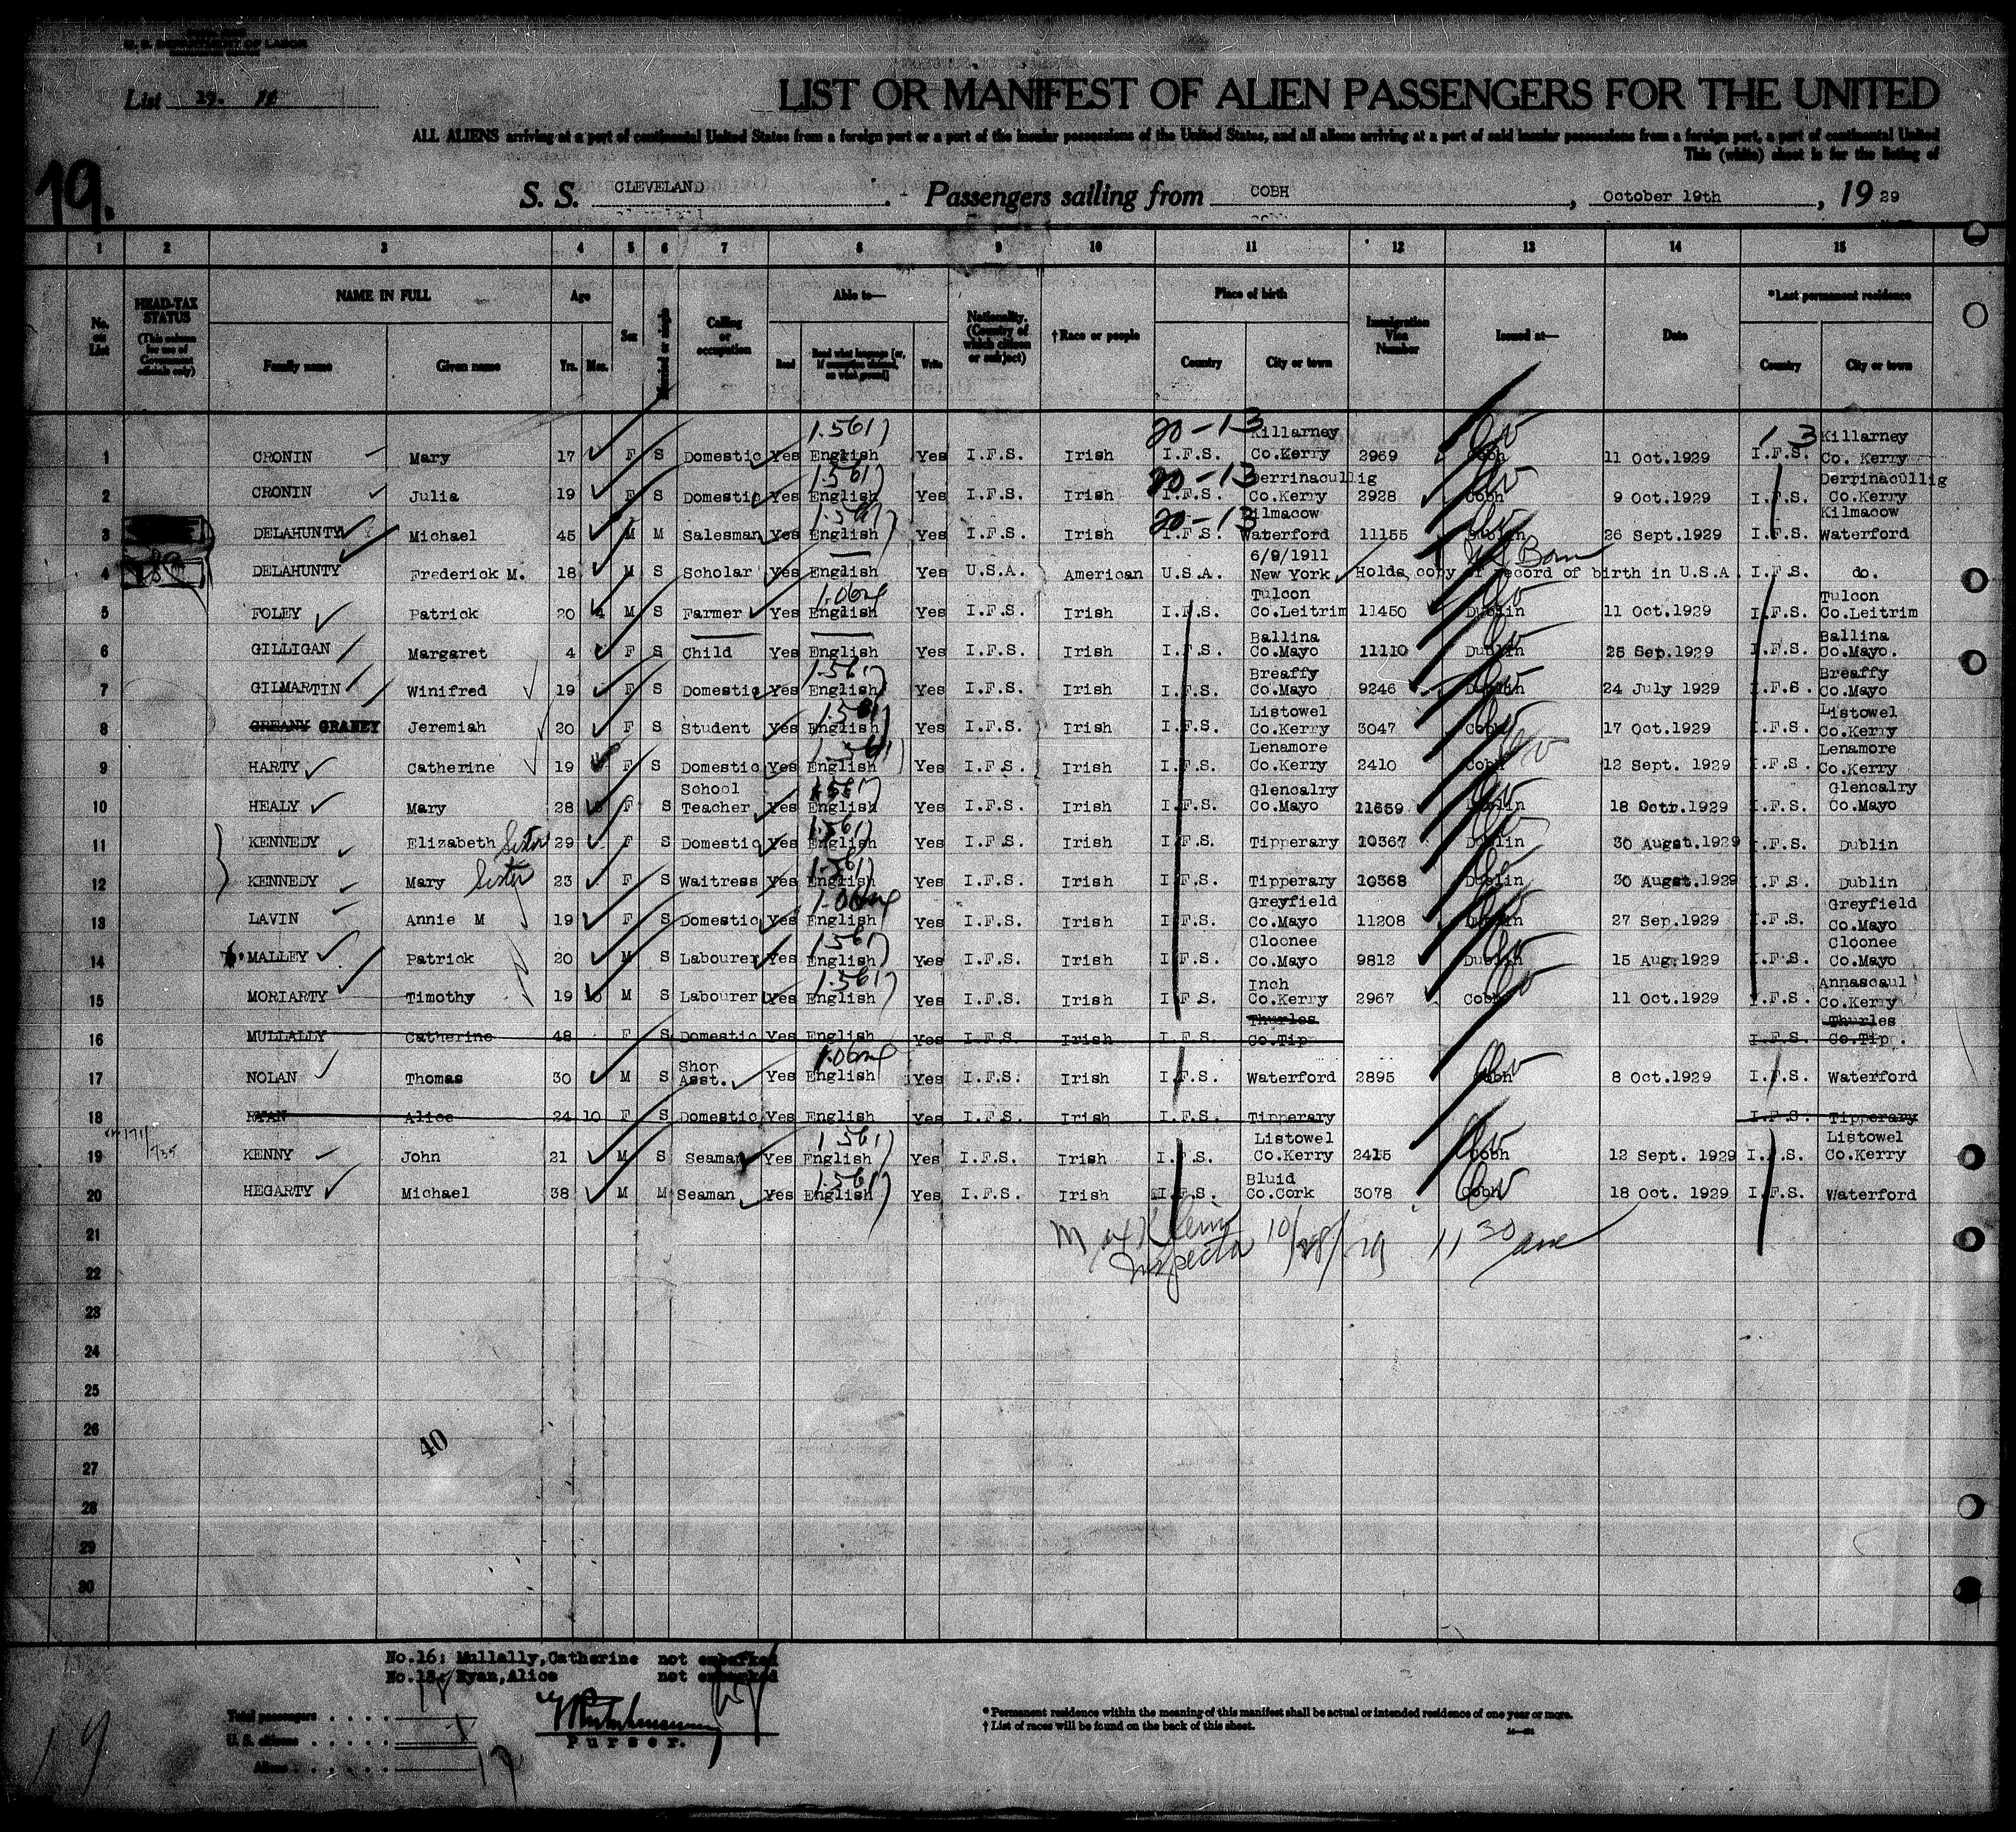 U. S. DEPARTMENT OF LABOR
List 29.
LIST OR MANIFEST OF ALIEN PASSENGERS FOR THE UNITED
ALL ALIENS arriving at a port of continental United States from a foreign port or a port of the insular possessions of the United States, and all aliens arriving at a port of said insular possessions from a foreign port, a port of continental United
This (white) sheet is for the listing of
19.
S. S. CLEVELAND. Passengers sailing from COBH, October 19th, 1929
1 2 3 4 5 6 7 8 9 10 11 12 13 14 15
No. on List
HEAD-TAX STATUS (This column for use of Government officials only)
NAME IN FULL Family name Given name
Age Yrs. Mos.
Sex
Married or single
Calling or occupation
Able to— Read Read what language [or, if exemption claimed, on what ground] Write
Nationality. (Country of which citizen or subject)
†Race or people
Place of birth Country City or town
Immigration Visa Number
Issued at—
Date
*Last permanent residence Country City or town
1 CRONIN Mary 17 F S Domestic Yes English Yes I.F.S. Irish I.F.S. Killarney Co.Kerry 2969 Cobh 11 Oct.1929 I.F.S. Killarney Co. Kerry
1.561) 20-13 13
2 CRONIN Julia 19 F S Domestic Yes English Yes I.F.S. Irish I.F.S. Derrinacullig Co.Kerry 2928 Cobh 9 Oct.1929 I.F.S. Derrinacullig Co.Kerry
1.561) 20-13
3 DELAHUNTY Michael 45 M M Salesman Yes English Yes I.F.S. Irish I.F.S. Kilmacow Waterford 11155 Dublin 26 Sept.1929 I.F.S. Kilmacow Waterford
1.561) 20-13
4 DELAHUNTY Frederick M. 18 M S Scholar Yes English Yes U.S.A. American U.S.A. 6/9/1911 New York Holds copy of record of birth in U.S.A. I.F.S. do.
US Born
5 FOLEY Patrick 20 4 M S Farmer Yes English Yes I.F.S. Irish I.F.S. Tulcon Co.Leitrim 11450 Dublin 11 Oct.1929 I.F.S. Tulcon Co.Leitrim
6 GILLIGAN Margaret 4 F S Child Yes English Yes I.F.S. Irish I.F.S. Ballina Co.Mayo 11110 Dublin 25 Sep.1929 I.F.S. Ballina Co.Mayo.
7 GILMARTIN Winifred 19 F S Domestic Yes English Yes I.F.S. Irish I.F.S. Breaffy Co.Mayo 9246 Dublin 24 July 1929 I.F.S. Breaffy Co.Mayo
1.561)
8 GREANY GRANEY Jeremiah 20 F S Student Yes English Yes I.F.S. Irish I.F.S. Listowel Co.Kerry 3047 Cobh 17 Oct.1929 I.F.S. Listowel Co.Kerry
1.561)
9 HARTY Catherine 19 F S Domestic Yes English Yes I.F.S. Irish I.F.S. Lenamore Co.Kerry 2410 Cobh 12 Sept. 1929 I.F.S. Lenamore Co.Kerry
1.561)
10 HEALY Mary 28 F S School Teacher Yes English Yes I.F.S. Irish I.F.S. Glencalry Co.Mayo 11659 Dublin 18 Octr.1929 I.F.S. Glencalry Co.Mayo
1.561)
11 KENNEDY Elizabeth Sister 29 F S Domestic Yes English Yes I.F.S. Irish I.F.S. Tipperary 10367 Dublin 30 Augst.1929 I.F.S. Dublin
1.561)
12 KENNEDY Mary Sister 23 F S Waitress Yes English Yes I.F.S. Irish I.F.S. Tipperary 10368 Dublin 30 Augst.1929 I.F.S. Dublin
1.561)
13 LAVIN Annie M 19 F S Domestic Yes English Yes I.F.S. Irish I.F.S. Greyfield Co.Mayo 11208 Dublin 27 Sep.1929 I.F.S. Greyfield Co.Mayo
14 MALLEY Patrick 20 M S Labourer Yes English Yes I.F.S. Irish I.F.S. Cloonee Co.Mayo 9812 Dublin 15 Aug.1929 I.F.S. Cloonee Co.Mayo
1.561)
15 MORIARTY Timothy 19 10 M S Labourer Yes English Yes I.F.S. Irish I.F.S. Inch Co.Kerry 2967 Cobh 11 Oct.1929 I.F.S. Annascaul Co.Kerry
1.561)
16 MULLALLY Catherine 48 F S Domestic Yes English Yes I.F.S. Irish I.F.S. Thurles Co.Tip I.F.S. Thurles Co.Tip.
17 NOLAN Thomas 30 M S Shop Asst. Yes English Yes I.F.S. Irish I.F.S. Waterford 2895 Cobh 8 Oct.1929 I.F.S. Waterford
18 RYAN Alice 24 10 F S Domestic Yes English Yes I.F.S. Irish I.F.S. Tipperary I.F.S. Tipperary
19 KENNY John 21 M S Seaman Yes English Yes I.F.S. Irish I.F.S. Listowel Co.Kerry 2415 Cobh 12 Sept. 1929 I.F.S. Listowel Co.Kerry
1.561)
20 HEGARTY Michael 38 M M Seaman Yes English Yes I.F.S. Irish I.F.S. Bluid Co.Cork 3078 Cobh 18 Oct. 1929 I.F.S. Waterford
1.561)
21
Inspector 10/28/29 11 30 am
22
23
24
25
26
40
27
28
29
30
No.16: Mullally,Catherine not embarked
No.18: Ryan,Alice not embarked
Total passengers . . . . .
U. S. citizens . . . . . 1
Aliens . . . . . . 17
Purser.
* Permanent residence within the meaning of this manifest shall be actual or intended residence of one year or more.
† List of races will be found on the back of this sheet.
19